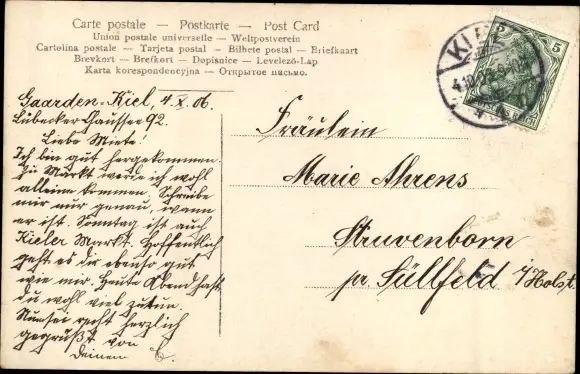 Carte postale — Postkarte — Post Card
Union postale universelle — Weltpostverein
Cartolina postale — Tarjeta postal — Bilhete postal — Briefkaart
Brevkort — Brefkort — Dopisnice — Levelező-Lap
Karta korespondencyjna — Открытое письмо.
KIEL
5
Gaarden-Kiel, 4.X.06.
Lübecker Chaussee 92.
Liebe Miete!
Ich bin gut hergekommen.
Zu Markt werde ich wohl
alleine kommen. Schreibe
mir nur genau, wann
er ist. Sonntag ist auch
Kieler Markt. Hoffentlich
geht es dir ebenso gut
wie mir. Heute Abend hast
du wohl viel zutun.
Nun sei recht herzlich
gegrüßt von
deinem
Fräulein
Marie Ahrens
Struvenborn
pr. Sülfeld i/Holst.